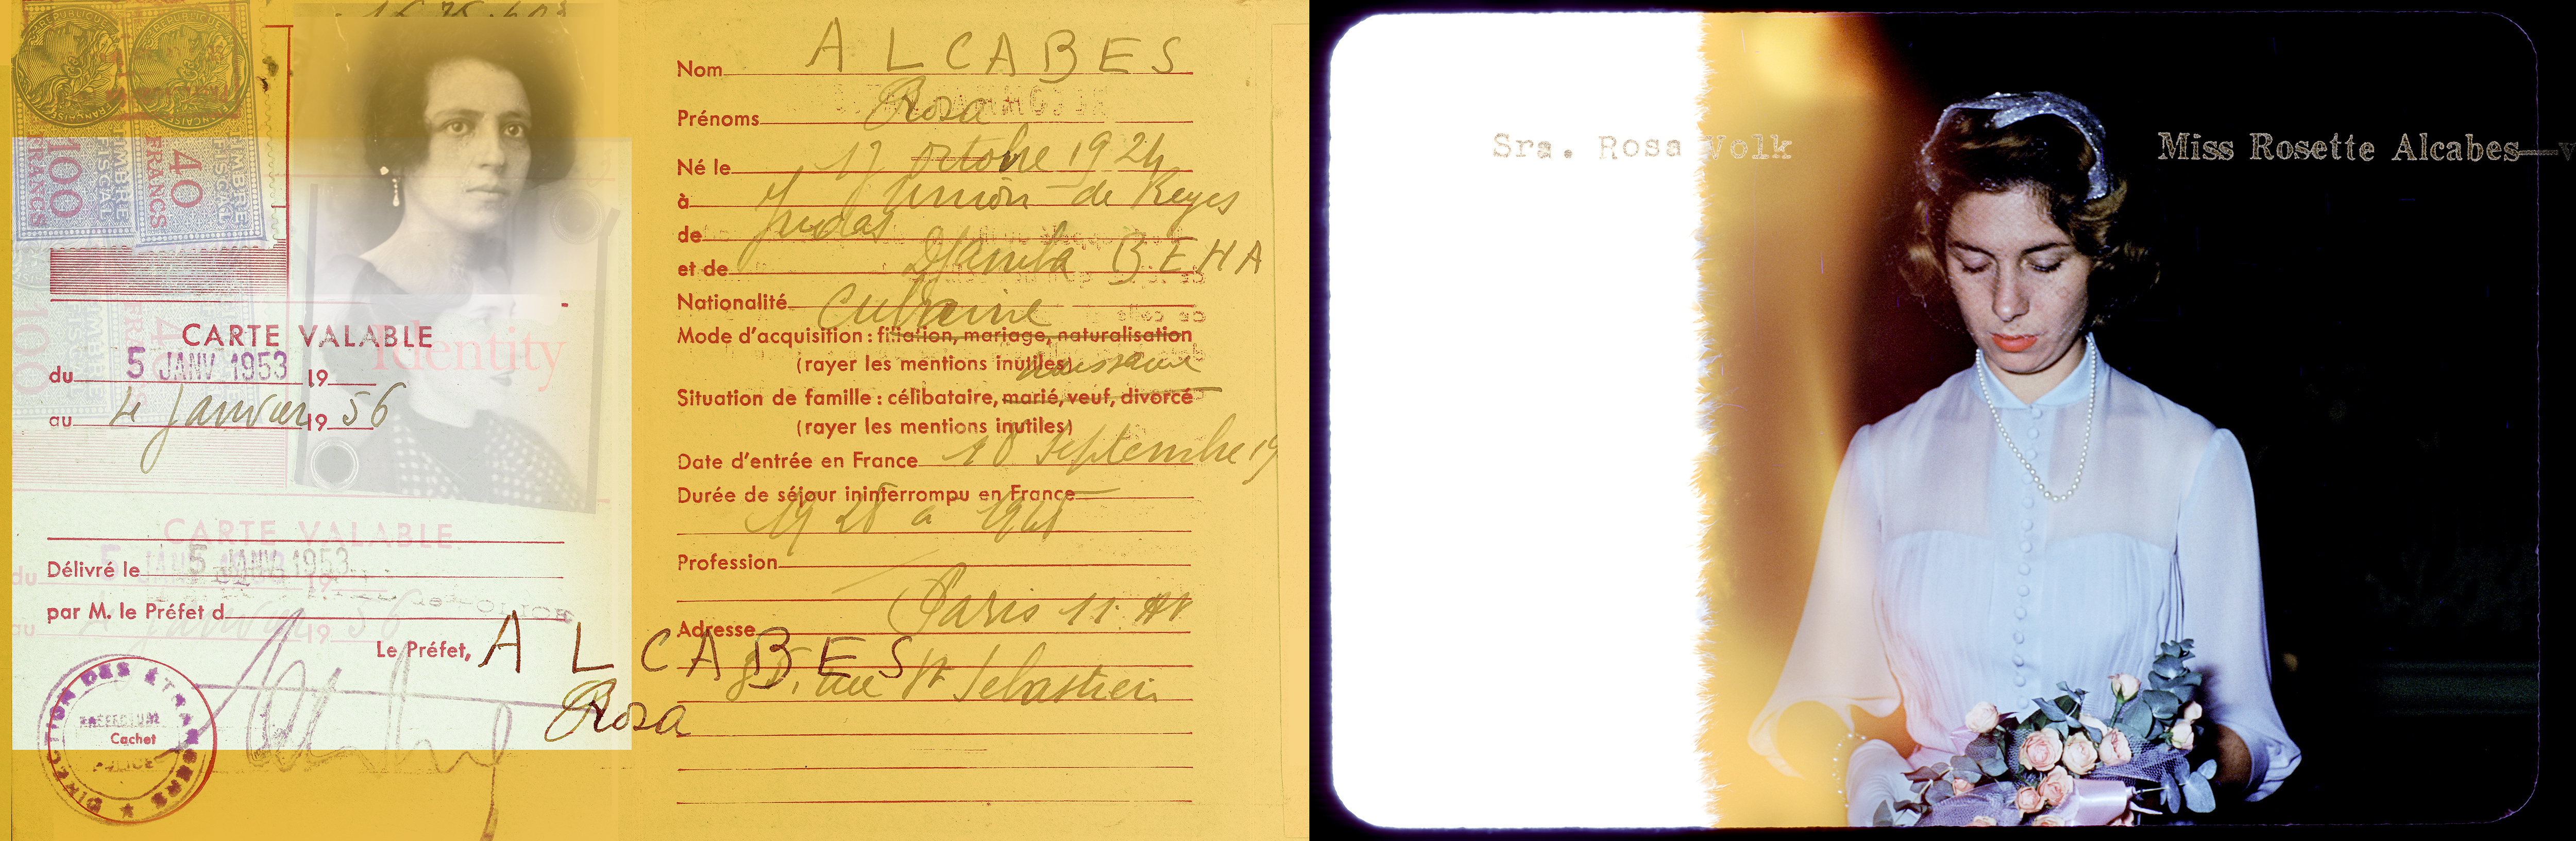 100
FRANCS
TIMBRE
FISCAL
40
FRANCS
TIMBRE
FISCAL
Identity
CARTE VALABLE
du 5 JANV 1953 19
au 4 Janvier 19 56
CARTE VALABLE
Délivré le 5 JANV 1953
par M. le Préfet d
Le Préfet,
ALCABES
Rosa
DIRECTION DES ÉTRANGERS
Cachet
POLICE
Nom ALCABES
Prénoms Rosa
Né le 17 octobre 1924
à Union de Reyes
de Judas
et de BEHA
Nationalité Cubaine
Mode d'acquisition : filiation, mariage, naturalisation
(rayer les mentions inutiles) naissance
Situation de famille : célibataire, marié, veuf, divorcé
(rayer les mentions inutiles)
Date d'entrée en France 18 Septembre 19
Durée de séjour ininterrompu en France
Profession
Paris 11
Adresse
rue St Sebastien
Sra. Rosa Volk
Miss Rosette Alcabes